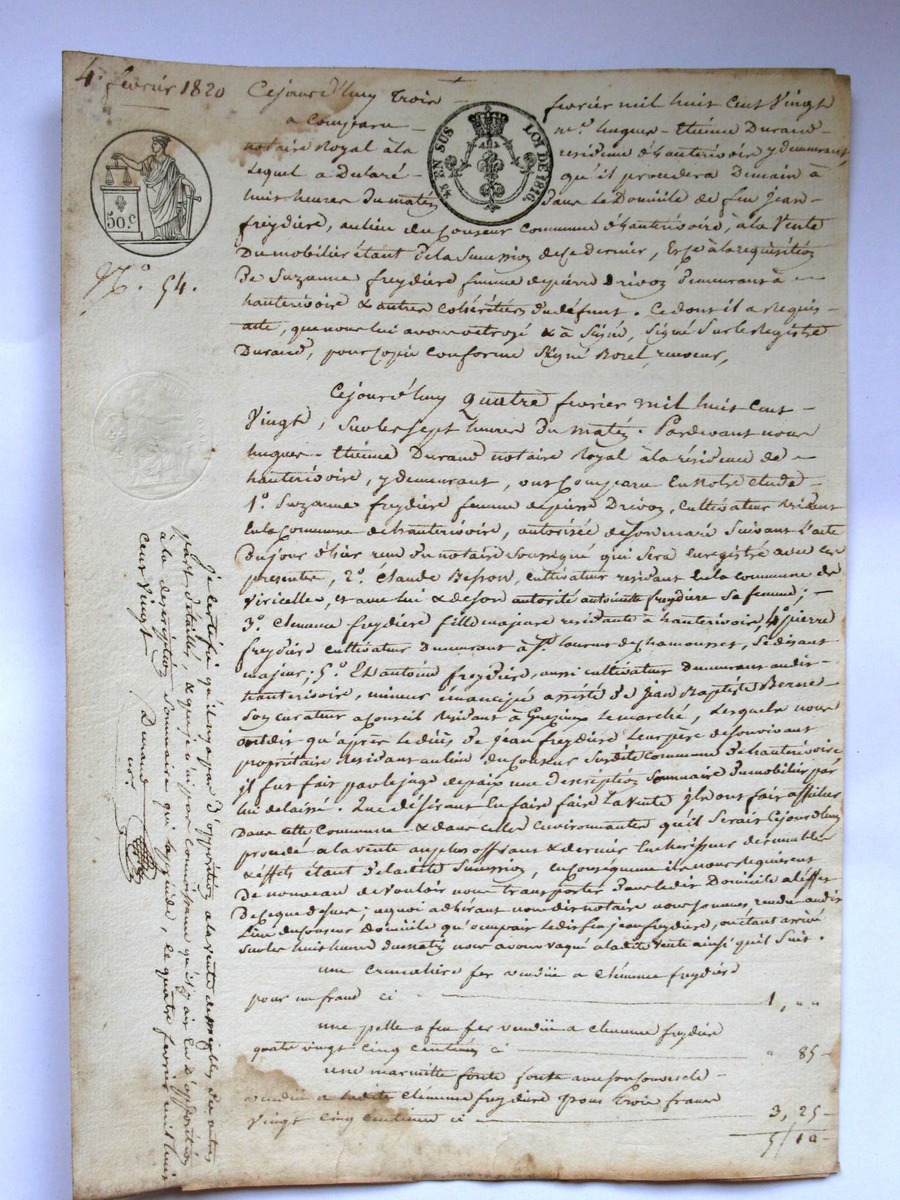 4. février 1820
Cejourd'huy trois février mil huit cent vingt
a comparu me. hugues-thiéme Durand
notaire Royal à la résidence d'hauterivoire y demeurant,
Lequel a Déclaré qu'il procedera Demain à
huit heures du matin Dans le Domicile de feu Jean
freydière, au lieu du couseur commune d'hauterivoire, à la Vente
Du mobilier étant De la Succession de ce dernier, Et ce à la requisition
De Suzanne freydière femme de pierre Drivon demeurant à
hauterivoire & autres cohéritiers du défunt. Ce dont il a Requis
acte, que nous lui avons octroyé & à Signé, Signé Sur le Registre
Durand, pour copie conforme Signé Borel, receveur,
EN SUS
LOI DE 1816.
50.c
No. 54.
Cejourd'huy quatre février mil huit cent
Vingt, Sur les Sept heures du matin. Pardevant nous
hugues-thiéme Durand notaire Royal à la résidence de
hauterivoire, y demeurant, ont Comparu En Notre étude
1o. Suzanne freydière femme de pierre Drivon, cultivateur résident
En la Commune de hauterivoire, autorisée de son mari Suivant l'acte
Du jour d'hier reçu du notaire Soussigné qui Sera Enregistré avec ces
presentes, 2o. Claude Besson, cultivateur residant En la commune de
Viricelle, et avec lui & de son autorité antoinette freydière Sa femme;
3o. Clémence freydière fille majeure residante à hauterivoire, 4o. pierre
freydière cultivateur Demeurant à St. Laurent de Chamousset, Se disant
majeur; 5o. Et antoine freydière, aussi cultivateur Demeurant audit
hauterivoire, mineur émancipé assisté De Jean Baptiste
Son curateur a conseil Résidant à Grezieux le marché, Lesquels nous
ont dit qu'après le décès De Jean freydière Leur père de Son vivant
propriétaire Résidant au lieu du Couseur Susdite Commune D'hauterivoire
il fut fait par le juge de paix une Description Sommaire Du mobilier par
lui delaissé. Que désirant En faire faire la Vente ils ont fait afficher
Dans cette Commune & dans celles environnantes qu'il Serait cejourd'huy
procédé à la vente au plus offrant & dernier Encherisseur des meubles
& effets étant De la dite Succession, En conséquence ils nous Requierent
De nouveau de Vouloir nous transporter Dans le dit Domicile a l'effet
De ce que dessus; a quoi adhérant nous dit notaire nous Sommes rendu audit
Lieu du couseur domicile qu'occupait le dit feu jean freydière, ou étant arrivé
Sur les huit heures du matin nous avons vaqué à la dite Vente ainsi qu'il Suit.
une fer vendue a Clémence freydière
pour un franc ci 1, " "
une pelle a feu fer vendue a Clémence freydière
quatre vingt cinq centimes ci " 85
une marmitte fonte avec son couvercle
vendue a ladite Clémence freydière pour trois francs
vingt cinq centimes ci 3, 25
5, 10
je certifie qu'il n'y a pas D'opposition a la Vente des meubles D'autre
part détaillés, & que je n'ai pas connaissance qu'il y ait eu D'opposition
à la description Sommaire qui a précédé, Le quatre fevrier mil huit
cent vingt
Durand